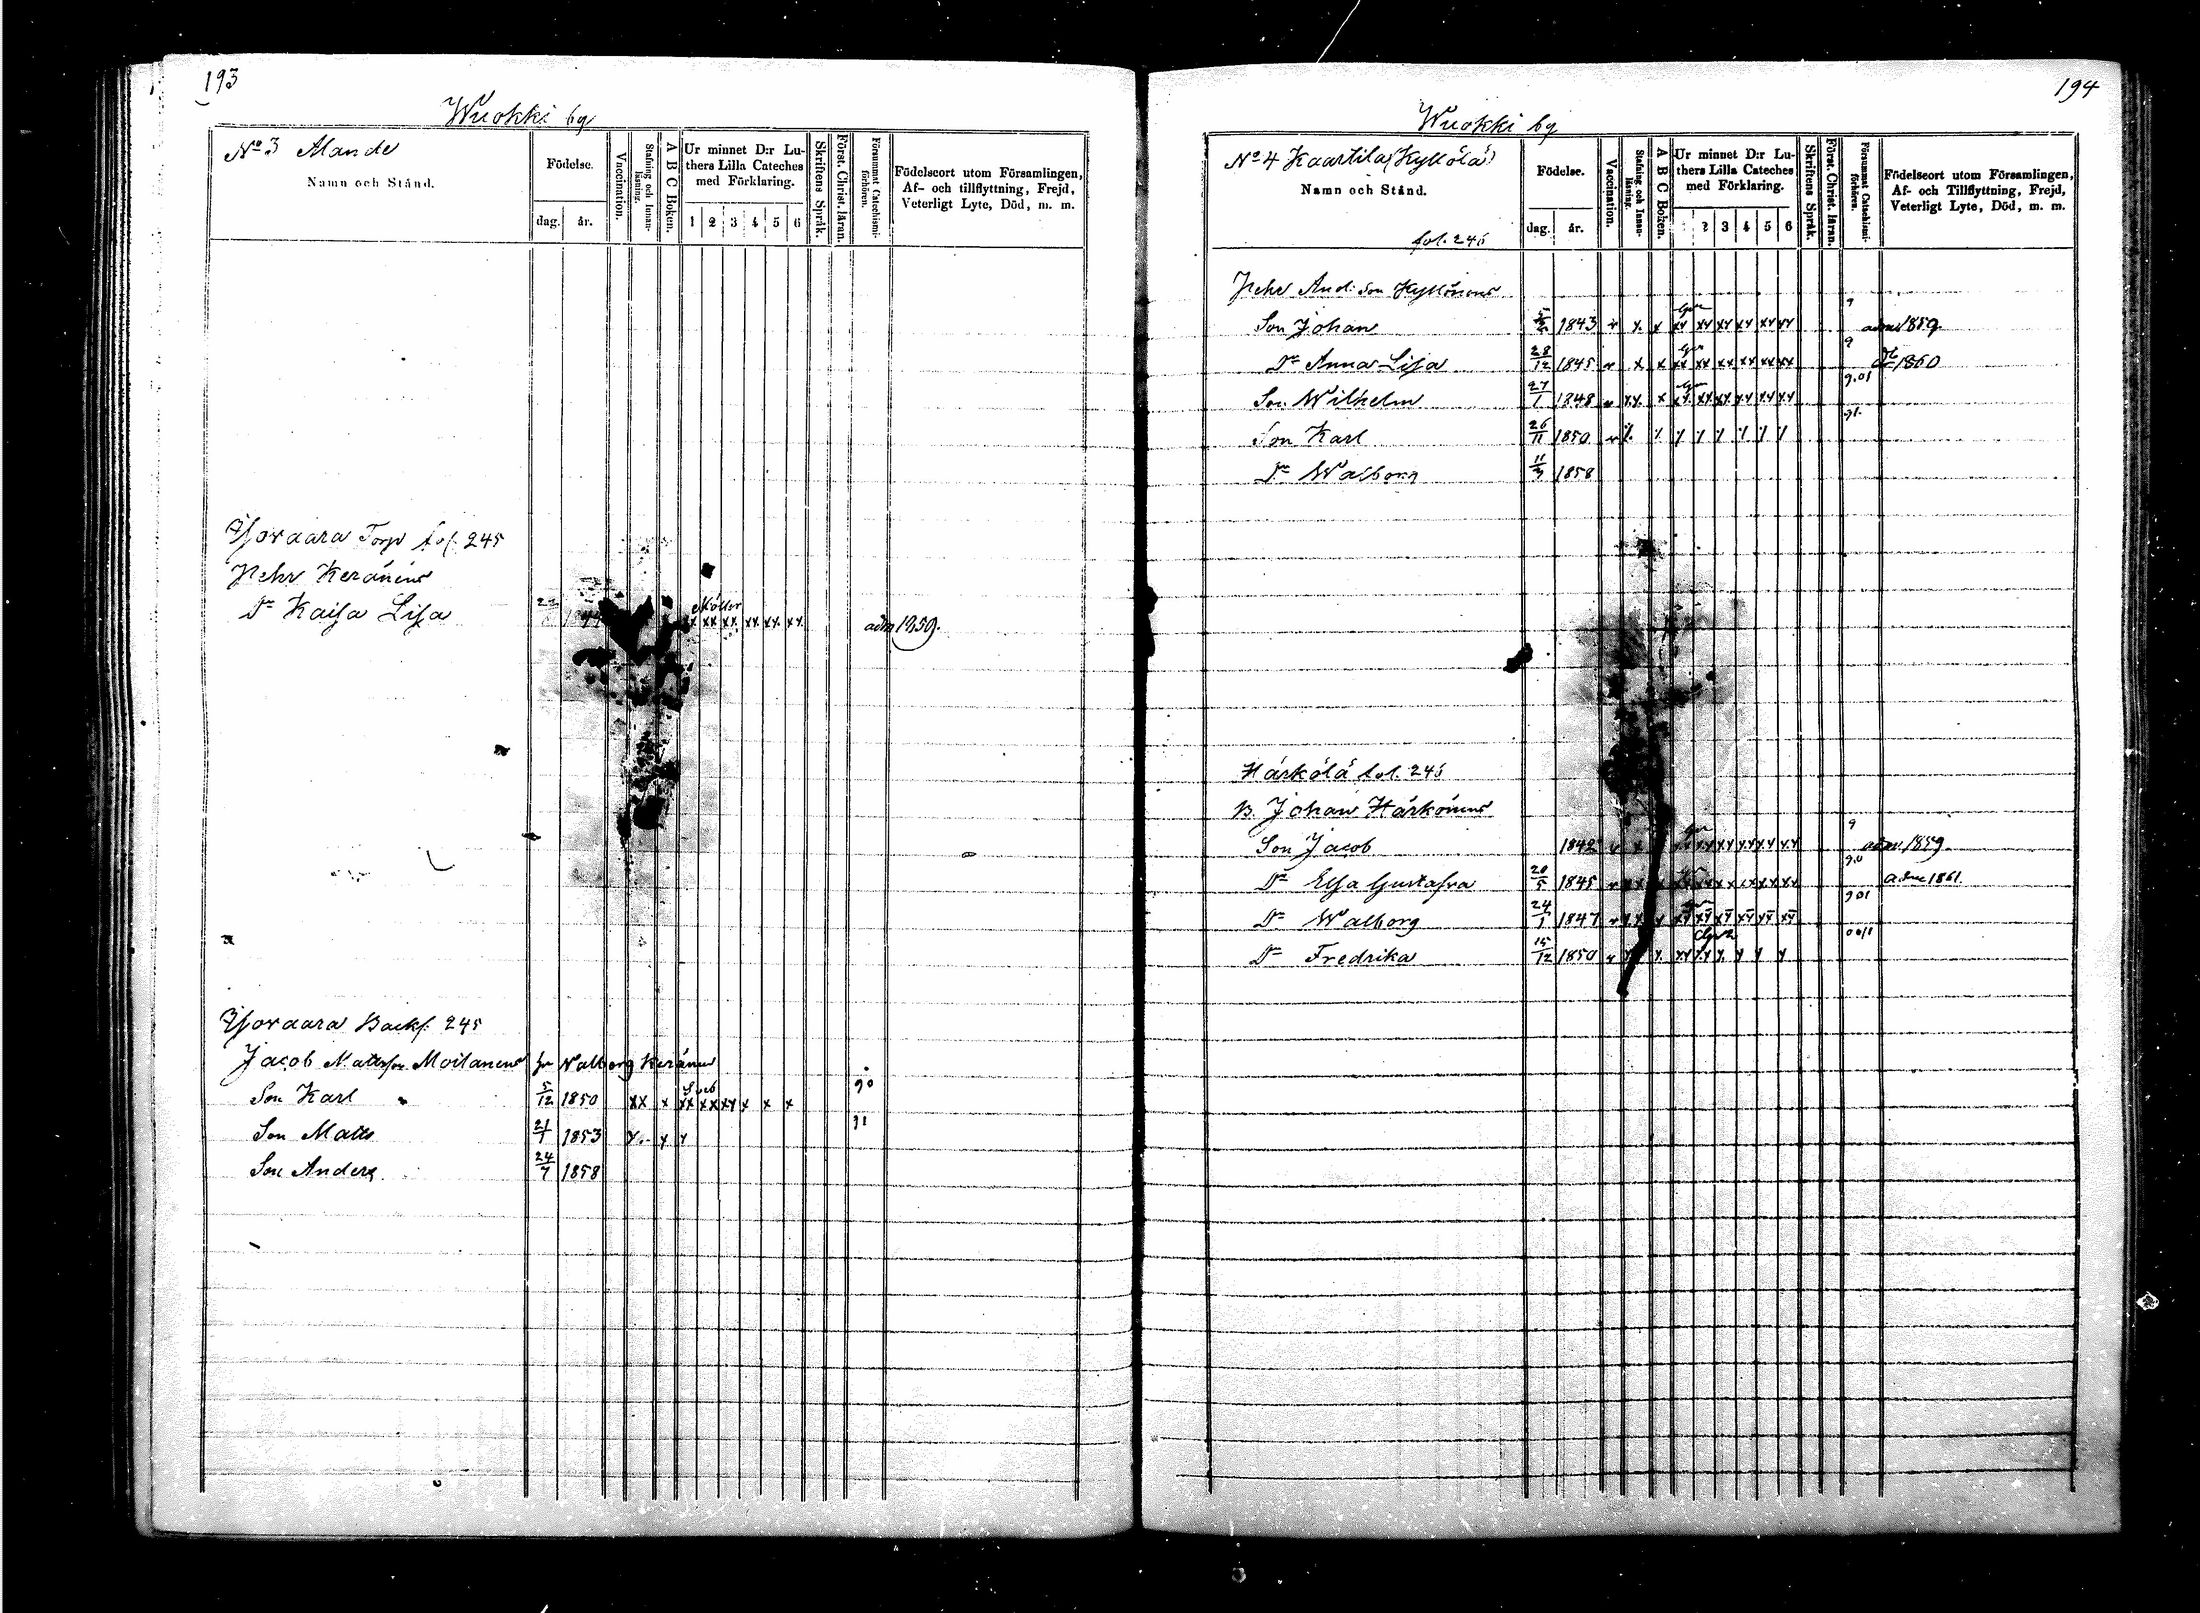 193
Wuokki by
No 3 Alande
Namn och Stånd.
Födelse.
dag. år.
Vaccination.
Stafning och Innanläsning.
A B C Boken.
Ur minnet D:r Luthers Lilla Cateches med Förklaring.
1 2 3 4 5 6
Skriftens Språk.
Först. Christ. läran.
Försummat Catechismiförhören.
Födelseort utom Församlingen,
Af- och tillflyttning, Frejd,
Veterligt Lyte, Död, m. m.
Torp fol. 245
Pehr Keränens
Dr Kaisa Lisa xx xx xx xx xx xx adm 1859.
Backs. 245
Jacob Mattsson Moilanens hu Walborg Keränen
Son Karl 5/12 1850 xx x xx xx xy x x x 90
Son Matts 21/1 1853 91
Son Anders 24/7 1858
194
Wuokki by
No 4 Kaartila (Kyllölä)
Namn och Stånd.
fol. 246
Födelse.
dag. år.
Vaccination.
Stafning och Innanläsning.
A B C Boken.
Ur minnet D:r Luthers Lilla Cateches med Förklaring.
1 2 3 4 5 6
Skriftens Språk.
Först. Christ. läran.
Försummat Catechismiförhören.
Födelseort utom Församlingen,
Af- och Tillflyttning, Frejd,
Veterligt Lyte, Död, m. m.
Pehr And: Son Kyllönens
Son Johan 1843 adm 1859.
Dr Anna Lisa 28/12 1845 1860
Son Wilhelm 27/1 1848
Son Karl 26/11 1850
Dr Walborg 11/3 1858
Härkölä fol. 246
B. Johan Härkönens
Son Jacob 1842 adm 1859
Dr Elsa Gustafva 20/5 1845 adm 1861.
Dr Walborg 24/1 1847
Dr Fredrika 15/12 1850